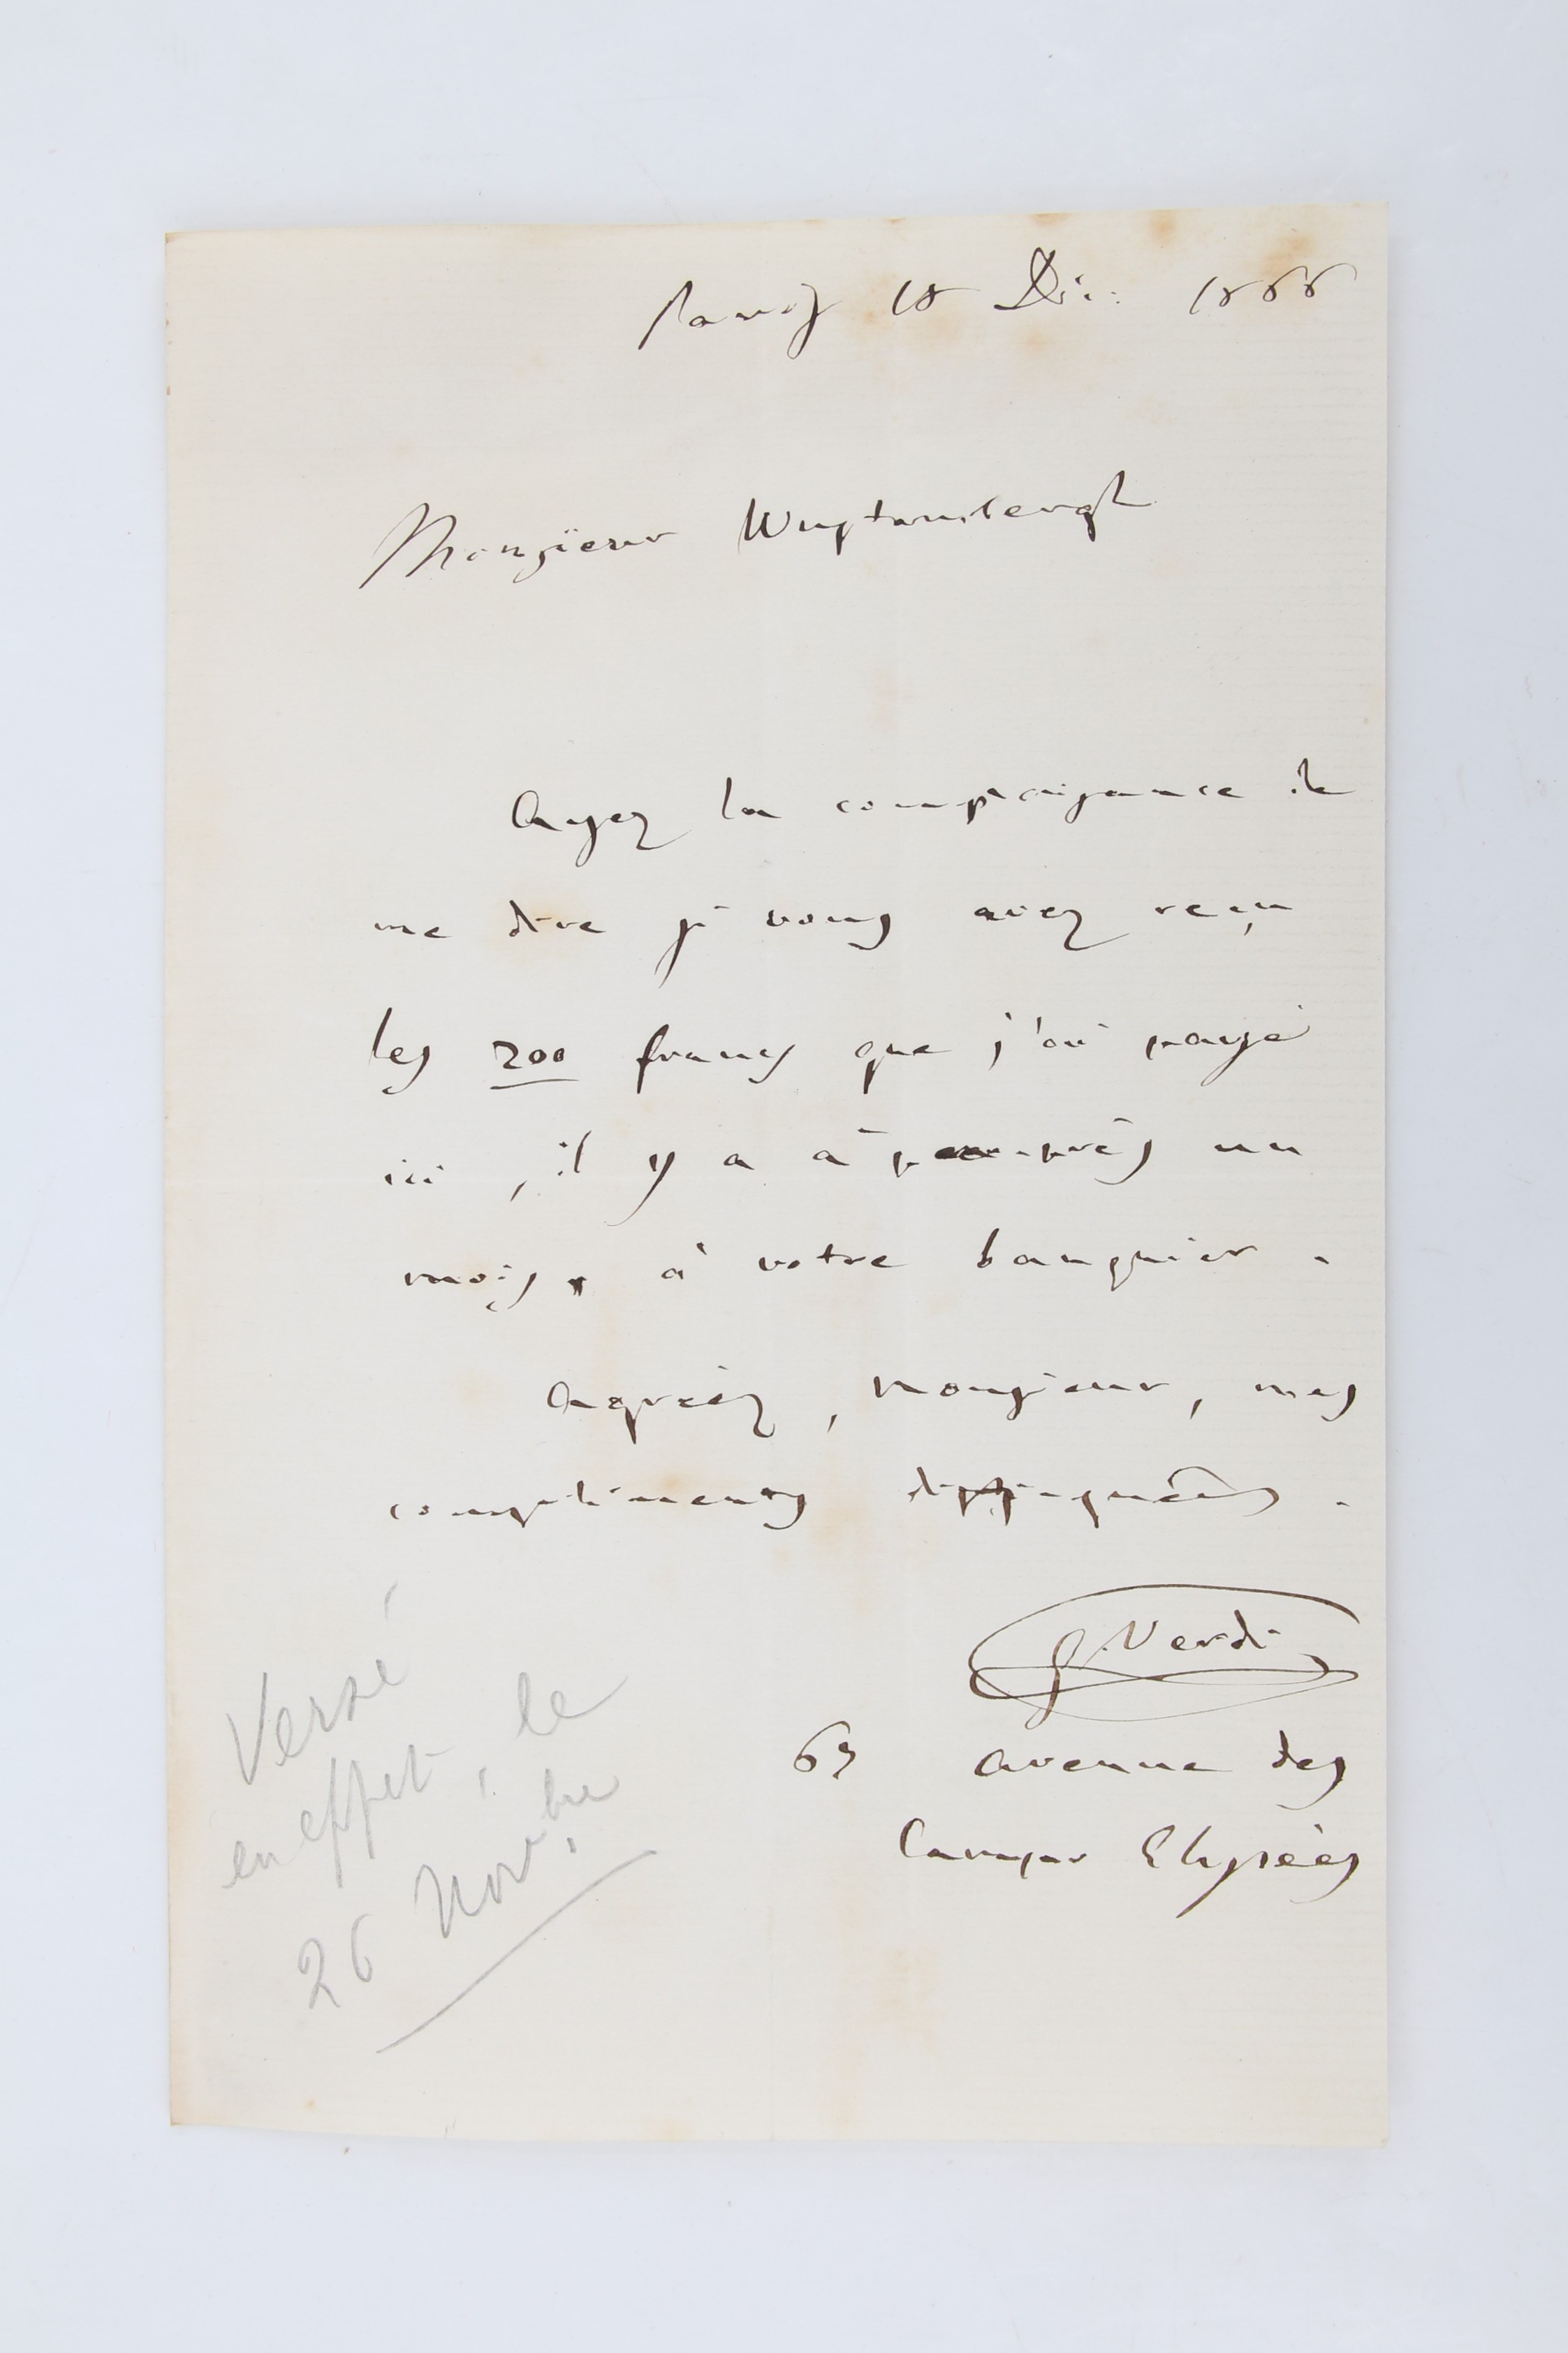 Paris 18 Déc: 1866
Monsieur
Ayez la complaisance de
me dire si vous avez reçu
les 200 francs que j'ai payé
ici, il y a à peu-près un
mois, à votre banquier.
Agréez, Monsieur, mes
compliments distingués.
G. Verdi
avenue des
Camps Elysées
Versé
en effet, le
26 Novbre